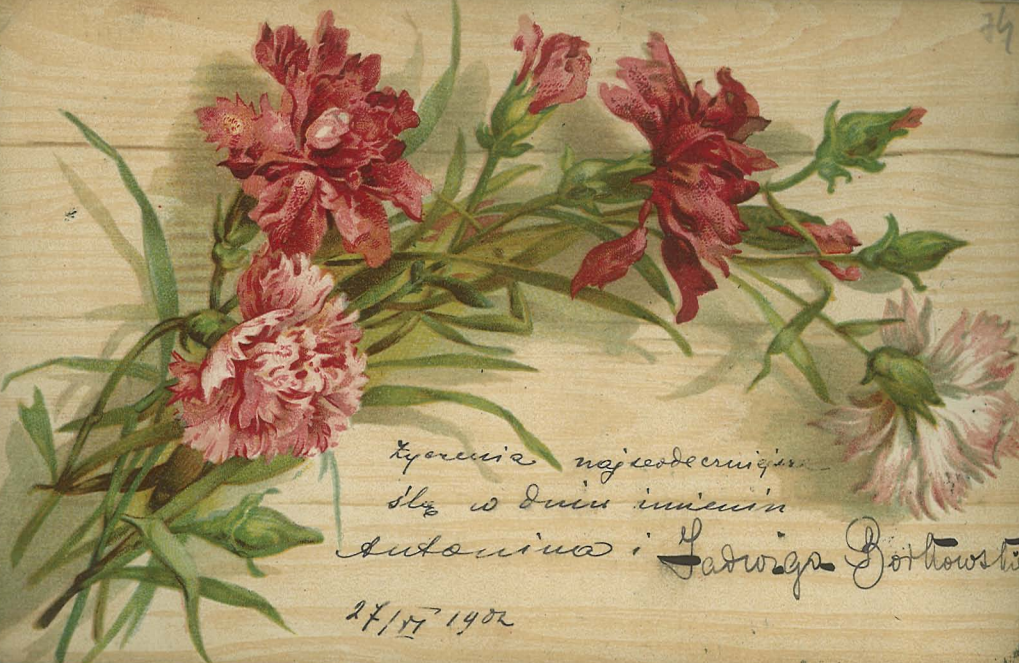 74
Życzenia najserdeczniejsze
ślą w dniu imienin
Antonina i Jadwiga Borkowskie
27/VI 1902